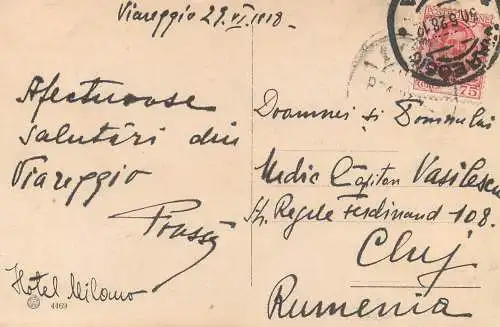 Viareggio 29.VI.1928-
Afectuoase
salutări din
Viareggio
Hotel Milano
4469
Doamnei și Domnului
Medic Căpitan Vasilescu
Str. Regele Ferdinand 108.
Cluj
Rumenia
VIAREGGIO
75